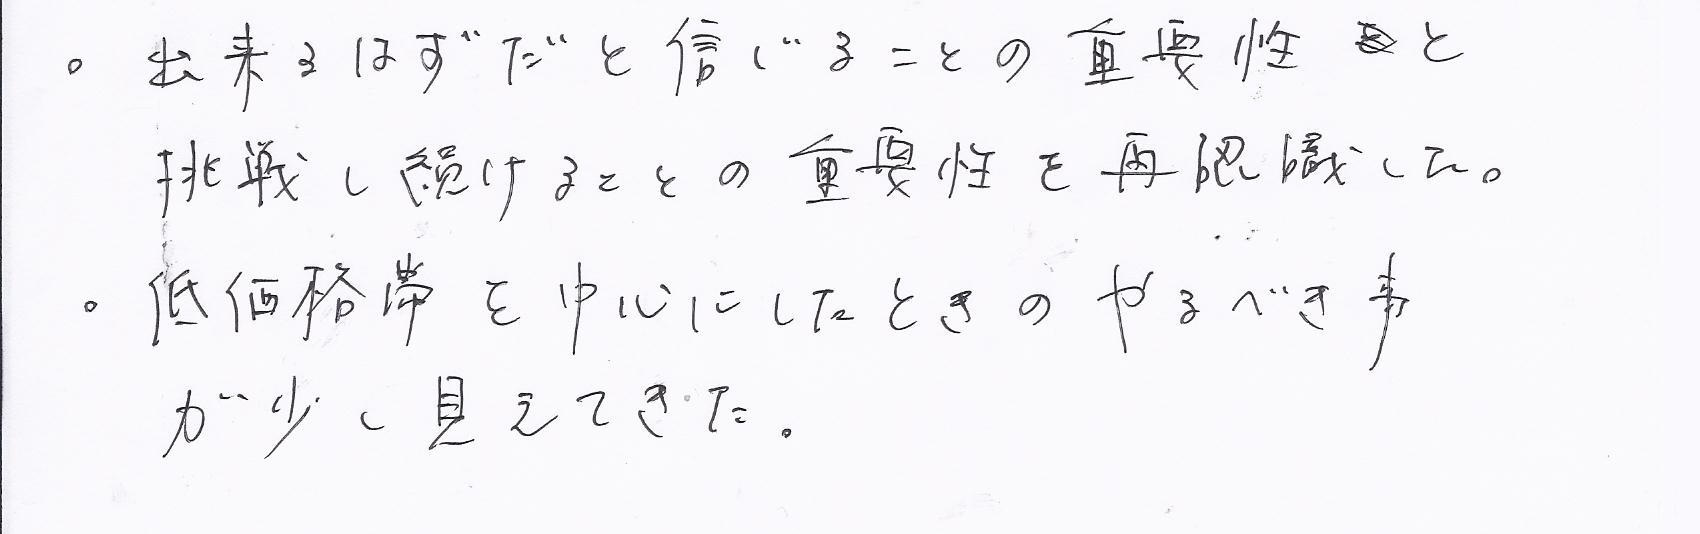 。出来るはずだと信じることの重要性と
挑戦し続けることの重要性を再認識した。
。低価格帯を中心にしたときのやるべき事
が少し見えてきた。